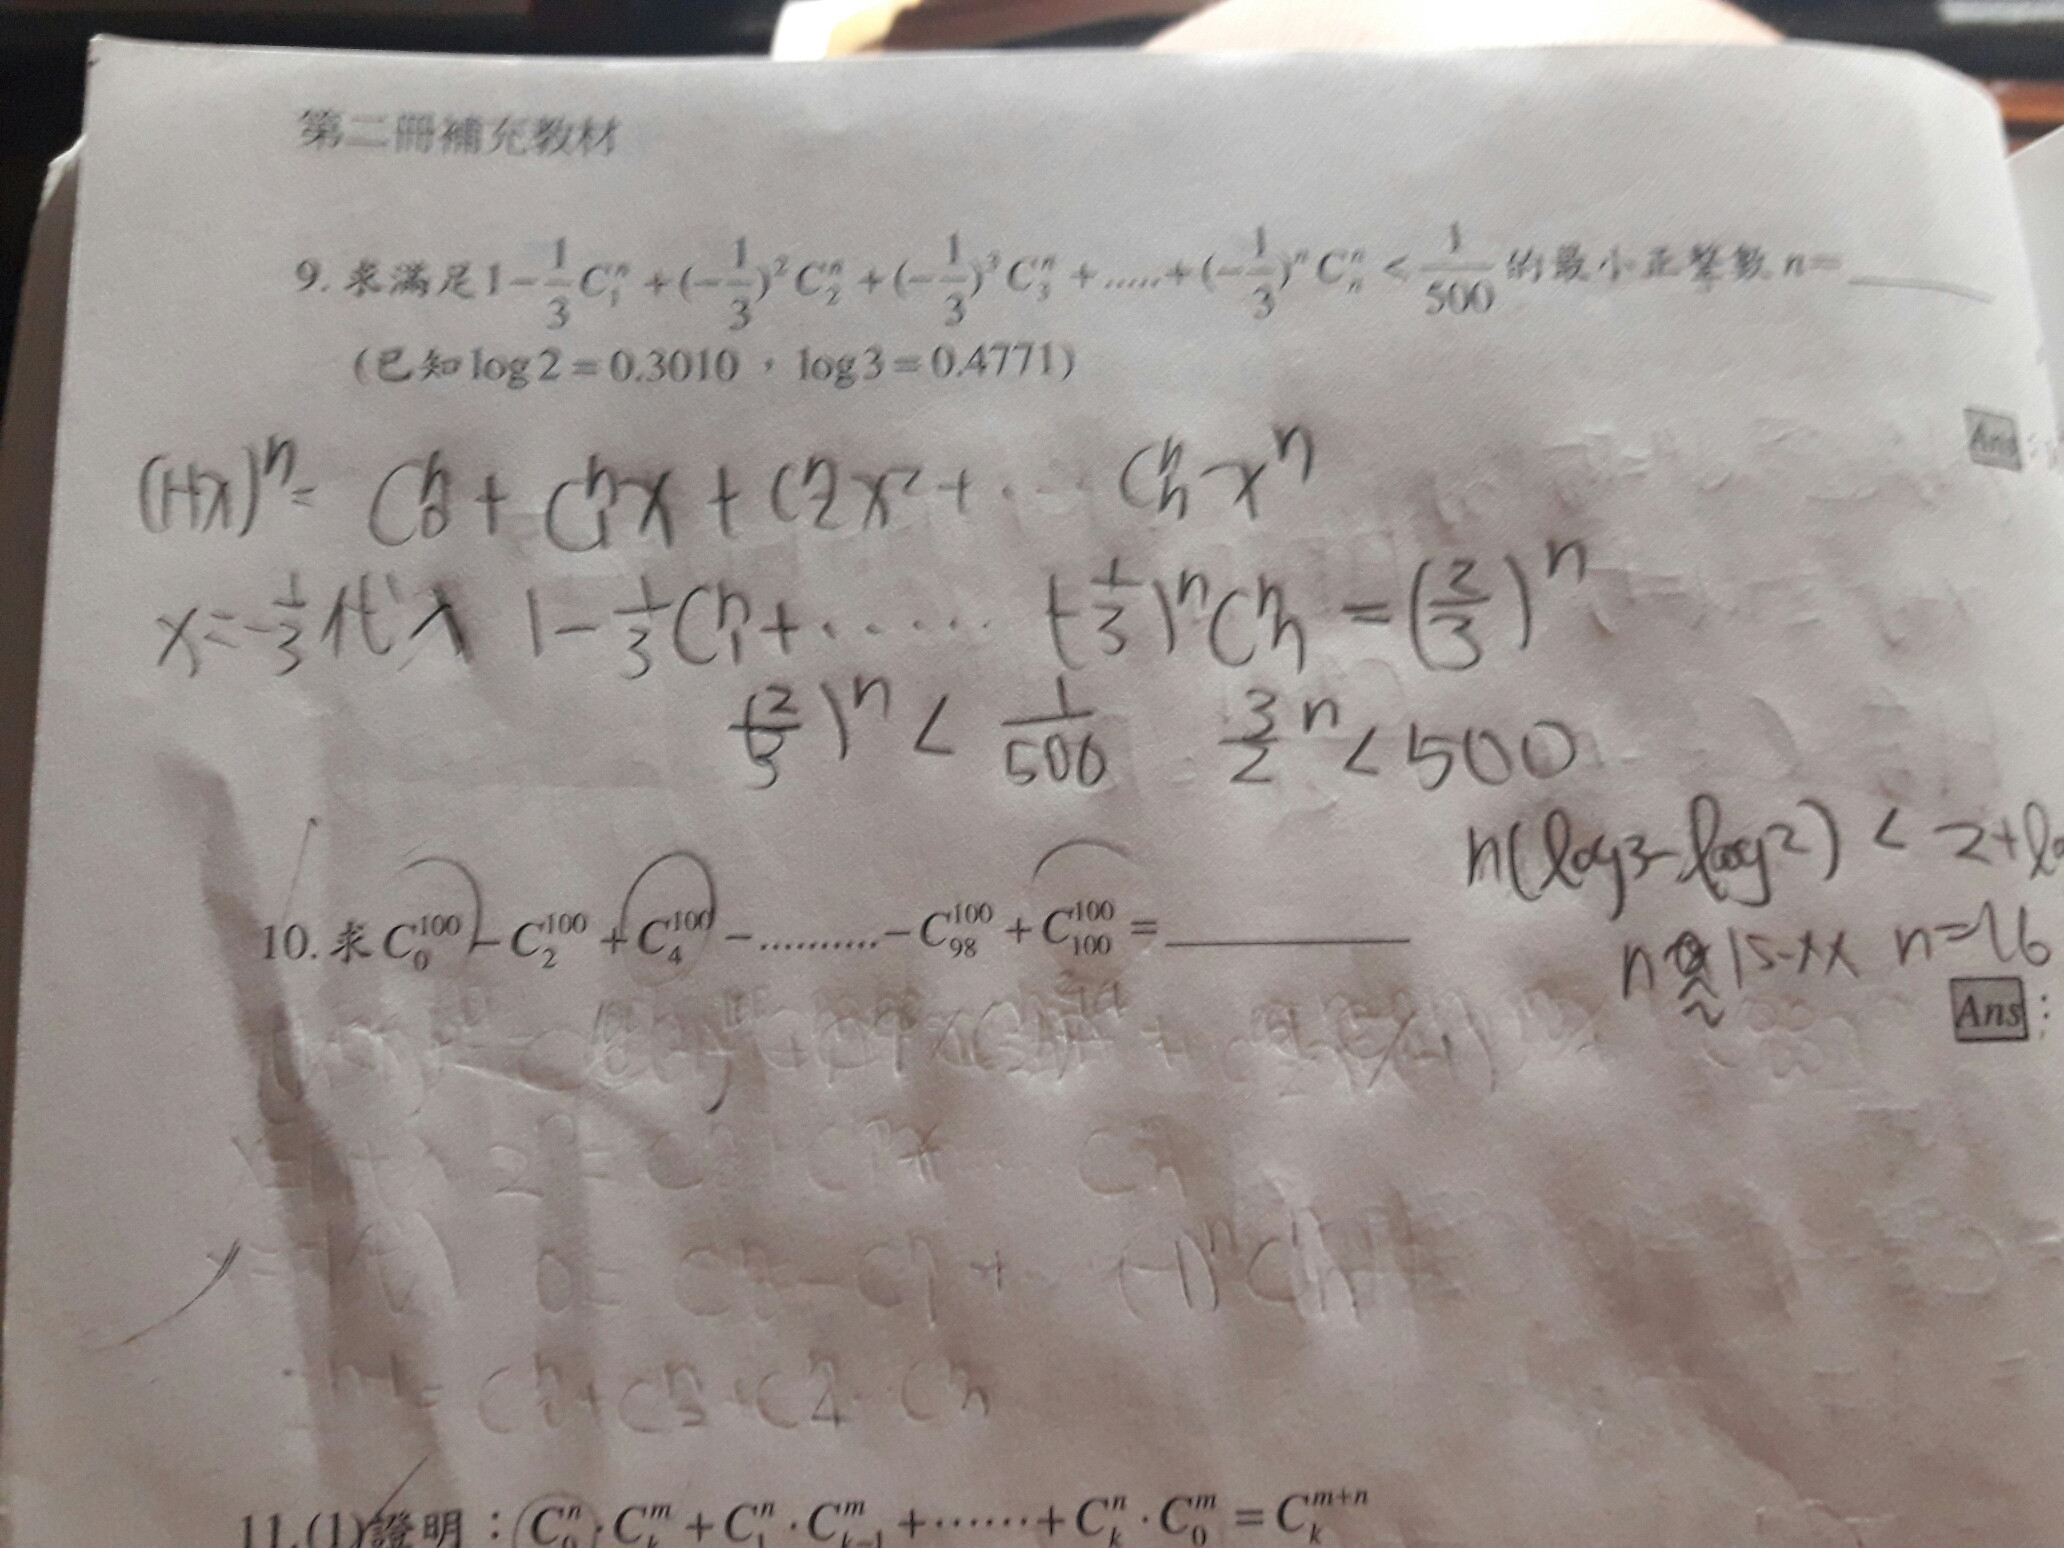 第二冊補充教材
9. 求滿足1-\frac{1}{3}C_1^n+(-\frac{1}{3})^2C_2^n+(-\frac{1}{3})^3C_3^n+.....+(-\frac{1}{3})^nC_n^n<\frac{1}{500}的最小正整數 n=____
(已知 log2=0.3010，log3=0.4771)
Ans:
(1+x)^n= C_0^n+C_1^nx+C_2^nx^2+... C_n^nx^n
x=-\frac{1}{3}代入 1-\frac{1}{3}C_1^n+...... (-\frac{1}{3})^nC_n^n=(\frac{2}{3})^n
(\frac{2}{3})^n<\frac{1}{500} \frac{3}{2}^n<500
n(log3-log2)<2+lo
n 15.xx n=16
10. 求C_0^{100}-C_2^{100}+C_4^{100}-..........-C_{98}^{100}+C_{100}^{100}=____
Ans:
11.(1)證明：C_0^n·C_k^m+C_1^n·C_{k-1}^m+······+C_k^n·C_0^m=C_k^{m+n}